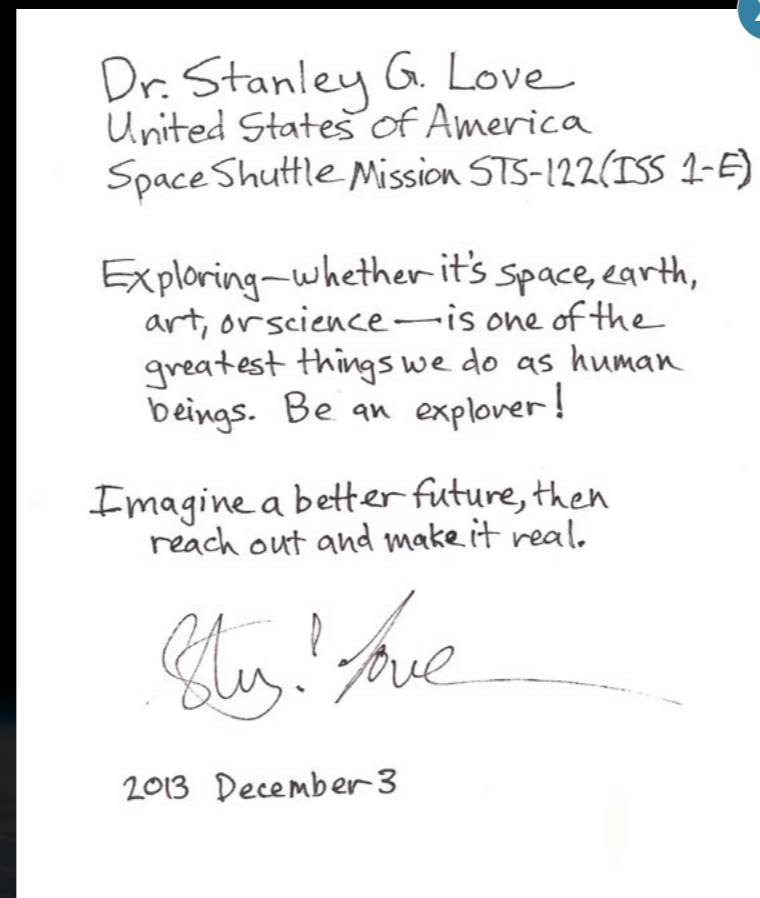 Dr. Stanley G. Love
United States of America
Space Shuttle Mission STS-122 (ISS 1-E)
Exploring—whether it's space, earth,
art, or science—is one of the
greatest things we do as human
beings. Be an explorer!
Imagine a better future, then
reach out and make it real.
Stan Love
2013 December 3